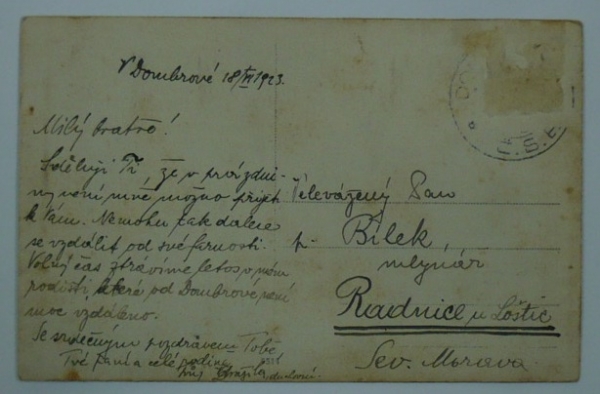 V Dombrové 18/VI 1923.
Milý bratře!
Sděluji Ti, že v prázdni-
nách není mně možno přijet
k Vám. Nemohu tak daleko
se vzdálit od své farnosti.
Volný čas ztrávíme letos v mém
rodišti, které od Dombrové není
moc vzdáleno.
Se srdečným pozdravem Tobě
Tvé paní a celé rodině
Tvůj duchovní.
Velevážený Pan
p. Bílek
mlynář
Radnice u Loštic
Sev. Morava